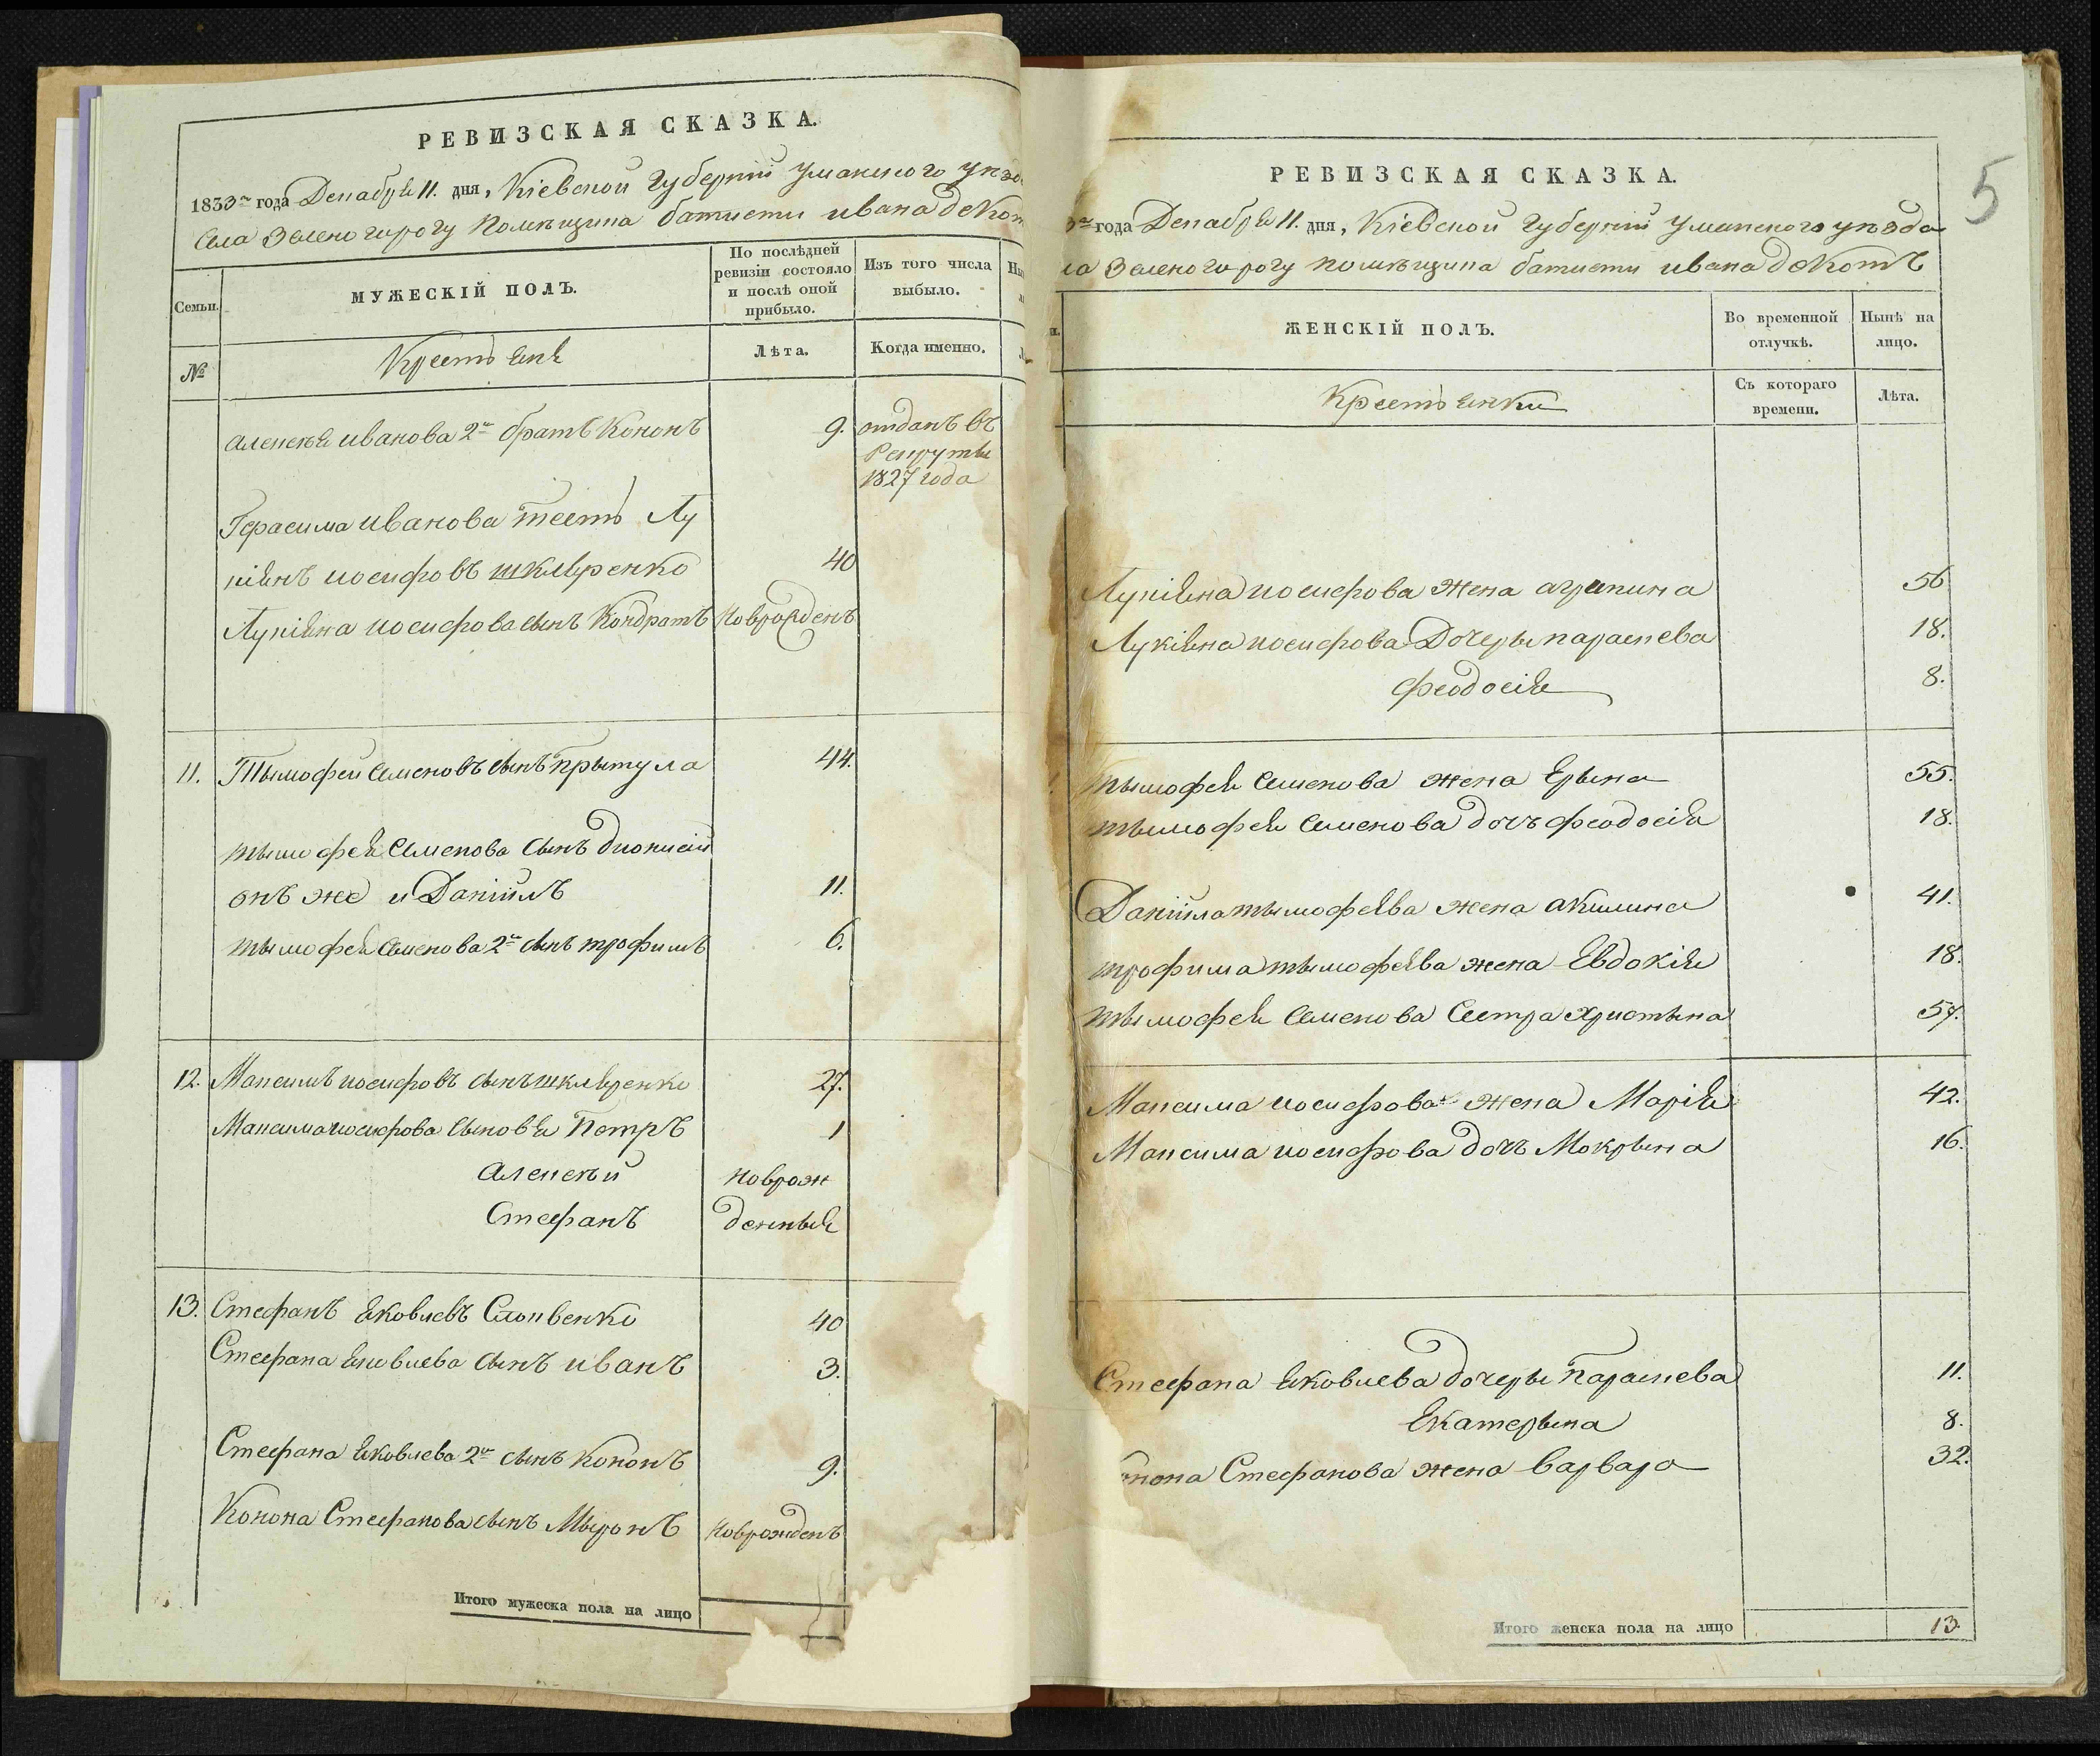 РЕВИЗСКАЯ СКАЗКА.
1833го года Декабря 11. дня, Кіевской Губерніи Уманского уѣзд
Села Зеленогорогу Помѣщика батисти ивана деКот
Семьи.
МУЖЕСКІЙ ПОЛЪ.
По послѣдней
ревизіи состояло
и послѣ оной
прибыло.
Изъ того числа
выбыло.
№
Крестьяне
Лѣта.
Когда именно.
алексѣя иванова 2й братъ Кононъ 9. отданъ въ
Рекруты
1827 года
Герасима иванова тесть Лу
кіянъ иосифовъ шкляренко 40
Лукіяна иосифова сынъ Кондратъ новрожденъ
11. Тымофей семеновъ сынъ Прытула 44.
тымофея семенова сынъ дионисий
онъ же и Даніилъ 11.
тымофея семенова 2й сынъ трофимъ 6.
12. Максимъ иосифовъ сынъ шкляренко 27.
Максима иосифова сыновья Петръ 1
алексѣй новрож
Стефанъ денныя
13. Стефанъ яковлевъ 40
Стефана яковлева сынъ иванъ 3.
Стефана яковлева 2й сынъ Кононъ 9.
Конона Стефанова сынъ Мыронъ новрожденъ
Итого мужеска пола на лицо
5
РЕВИЗСКАЯ СКАЗКА.
3го года Декабря 11. дня, Кіевской Губерніи Уманского уѣзда
ла Зеленогорогу помѣщика батисти ивана деКотъ
ЖЕНСКІЙ ПОЛЪ.
Во временной
отлучкѣ.
Нынѣ на
лицо.
Крестьянки
Съ котораго
времени.
Лѣта.
Лукіяна иосифова жена агрипина 56
Лукіяна иосифова Дочеры параскева 18.
феодосія 8.
тымофея семенова жена Ерына 55.
тымофея семенова дочъ феодосія 18.
Даніила тымофѣева жена акилина 41.
трофима тымофѣева жена Евдокія 18.
тымофея семенова Сестра Христына 57.
Максима иосифова жена Марія 42.
Максима иосифова дочъ Мокрына 16.
Стефана яковлева дочеры Параскева 11.
Екатерына 8.
онона Стефанова жена варвара 32.
Итого женска пола на лицо 13.